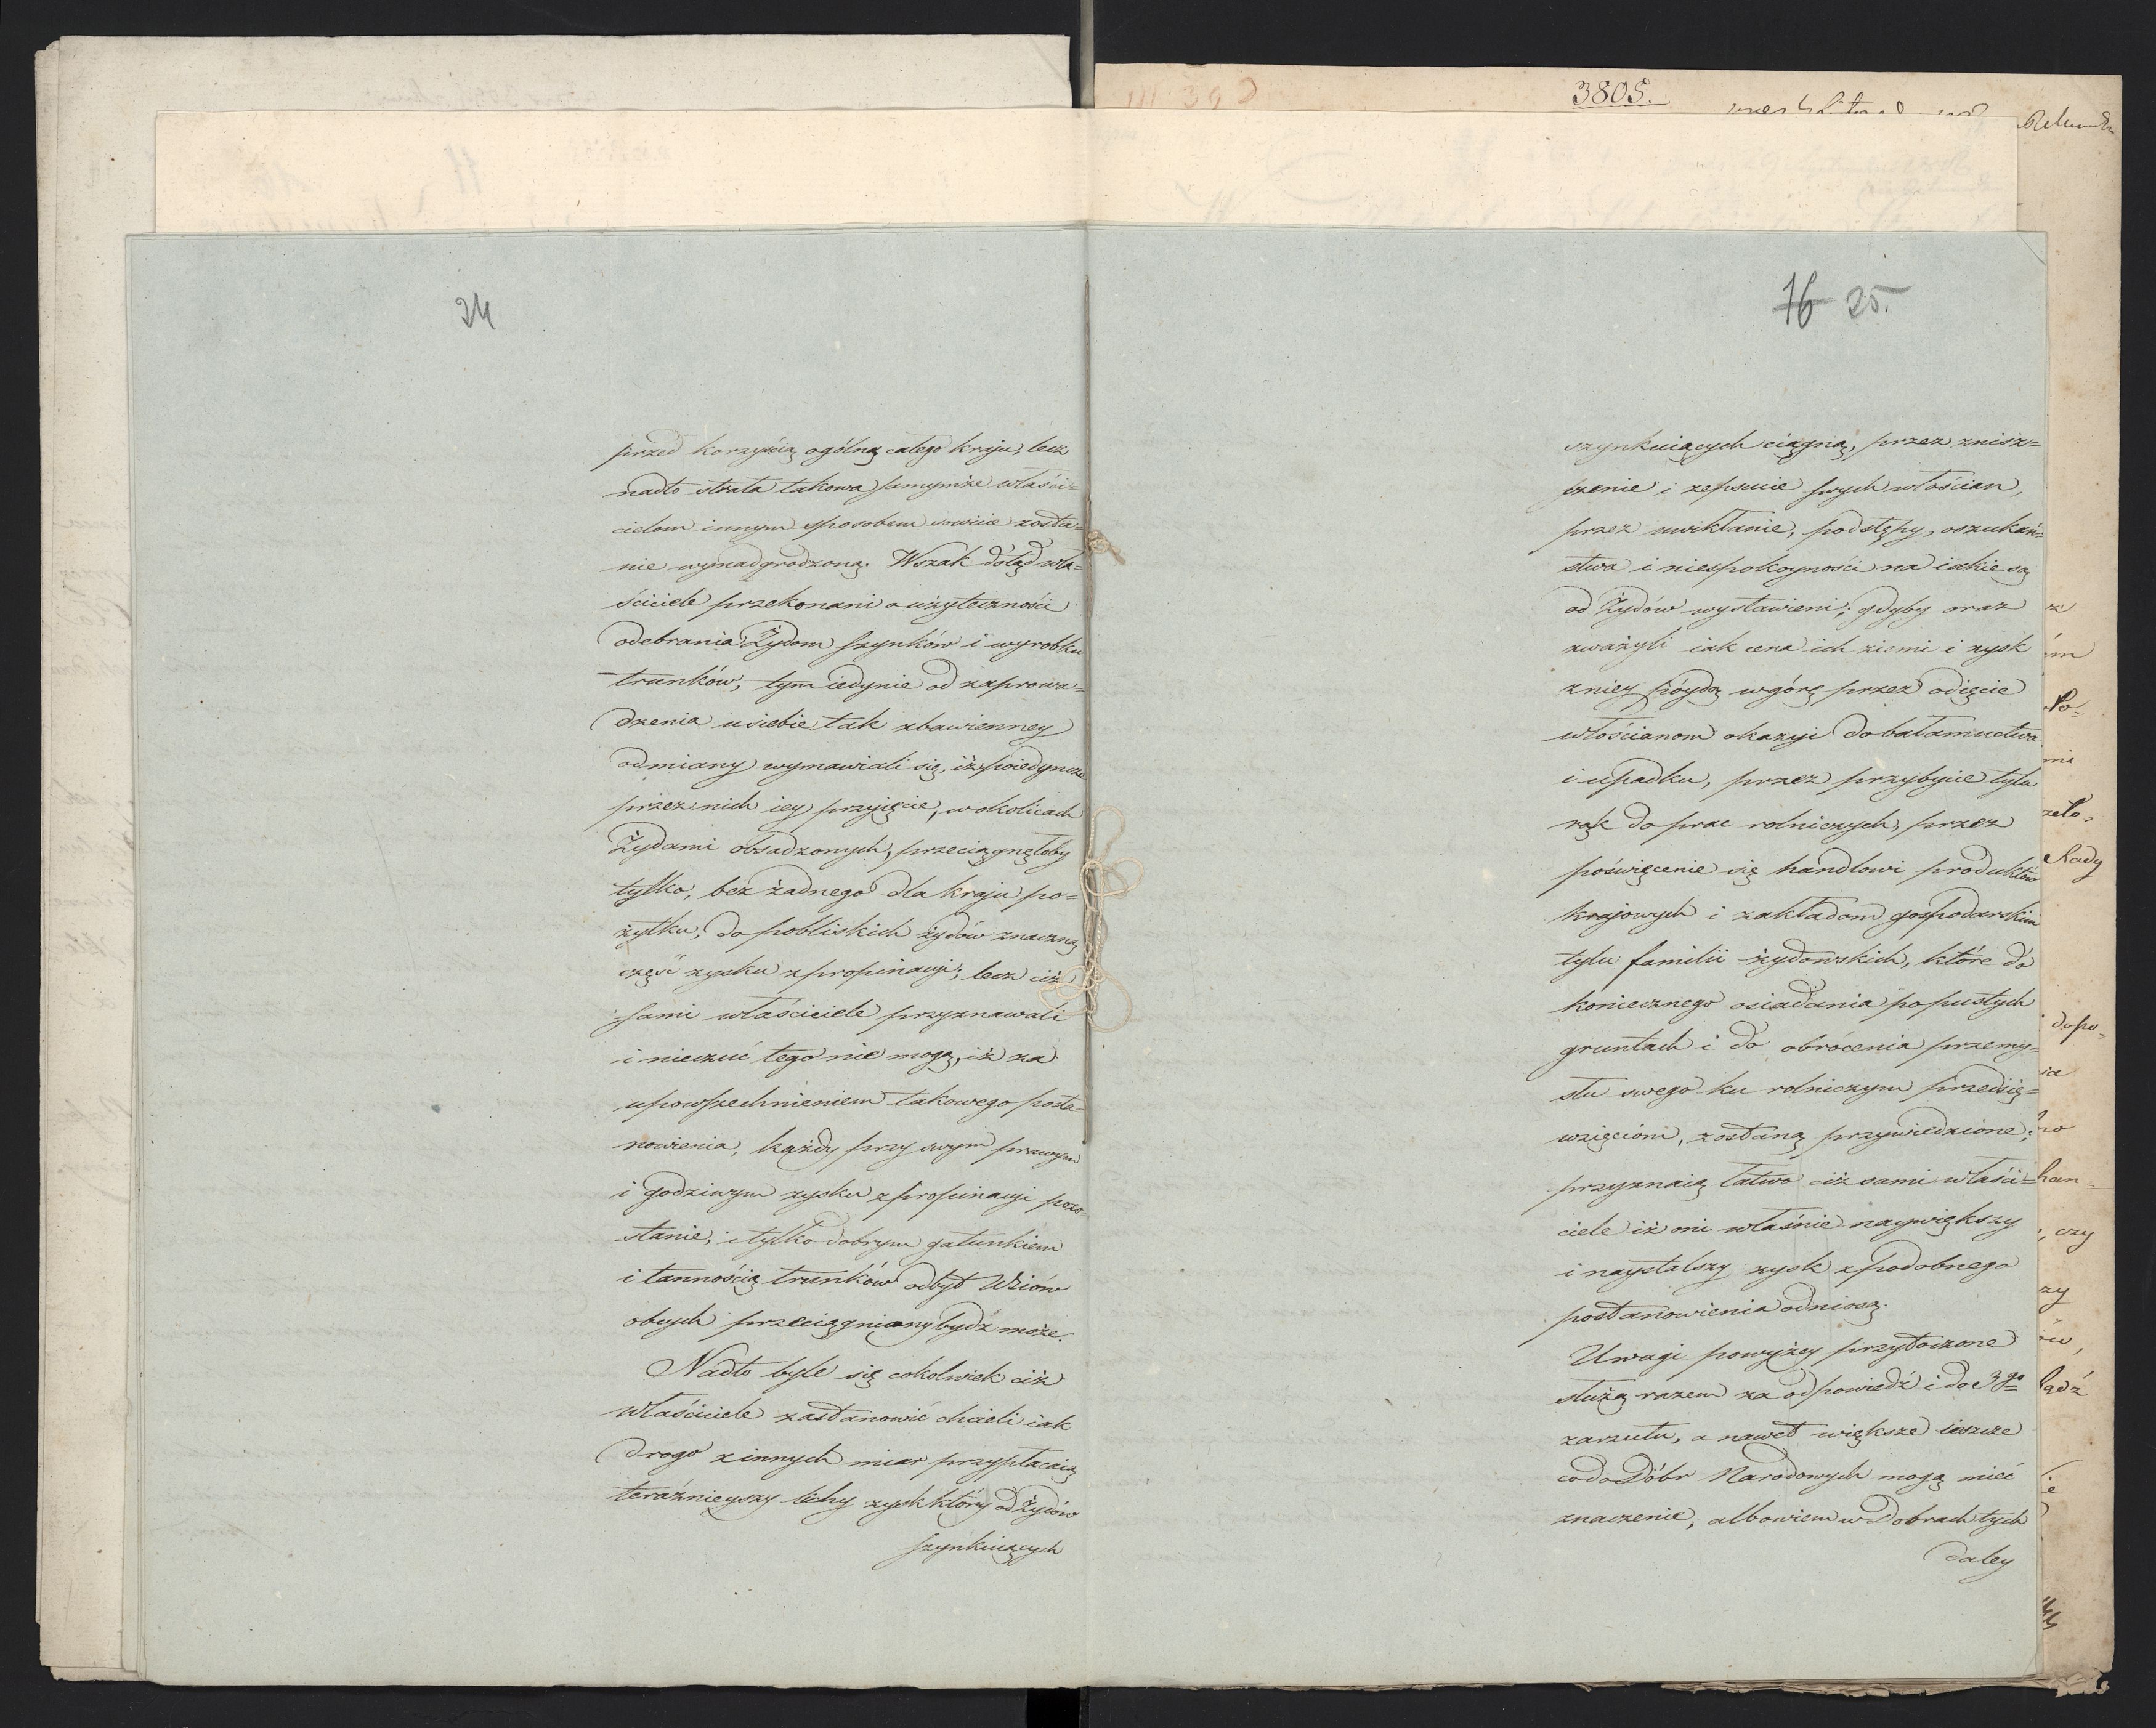 3805.
24
przed korzyścią ogólną całego kraju, lecz
nadto strata takowa samymże właści=
cielom innym sposobem sowicie zosta=
nie wynadgrodzoną. Wszak dotąd wła=
ściciele przekonani o użyteczności
odebrania Żydom szynków i wyrobku
trunków, tym iedynie od zaprowa=
dzenia u siebie tak zbawienney
odmiany wymawiali się, iż poiedyncze
przez nich iey przyięcie, w okolicach
Żydami obsadzonych, przeciągnęłoby
tylko, bez żadnego dla kraju po=
żytku, do pobliskich żydów znaczną
część zysku z propinacyi; lecz ciż
sami właściciele przyznawali
i nieczuć tego nie mogą, iż za
upowszechnieniem takowego posta=
nowienia, każdy przy swym prawym
i godziwym zysku z propinacyi pozo=
stanie, i tylko dobrym gatunkiem
i tannością trunków odbyt Wsiów
obcych przeciągniony bydź może.
Nadto byle się cokolwiek ciż
właściciele zastanowić chcieli iak
drogo z innych miar przypłacaią
teraźnieyszy lichy zysk który od Żydów
szynkuiących
16 25.
szynkuiących ciągną, przez znisz=
czenie i zepsucie swych włościan,
przez uwikłanie, podstępy, oszukań=
stwa i niespokoyności na iakie są
od Żydów wystawieni; gdyby oraz
zważyli iak cena ich ziemi i zysk
z niey póydą w górę przez odięcie
włościanom okazyi do bałamuctwa
i upadku, przez przybycie tyla
rąk do prac rolniczych, przez
poświęcenie się handlowi produktów
krajowych i zakładom gospodarskim
tylu familii żydowskich, które do
koniecznego osiadania po pustych
gruntach i do obrócenia przemy=
słu swego ku rolniczym przedsię=
wzięciom, zostaną przywiedzione;
przyznaią łatwo ciż sami właści=
ciele iż oni właśnie naywiększy
i naystalszy zysk z podobnego
postanowienia odniosą.
Uwagi powyżey przytoczone
służą razem za odpowiedź i do 3go
zarzutu, a nawet większe ieszcze
co do Dóbr Narodowych mogą mieć
znaczenie, albowiem w Dobrach tych
daley